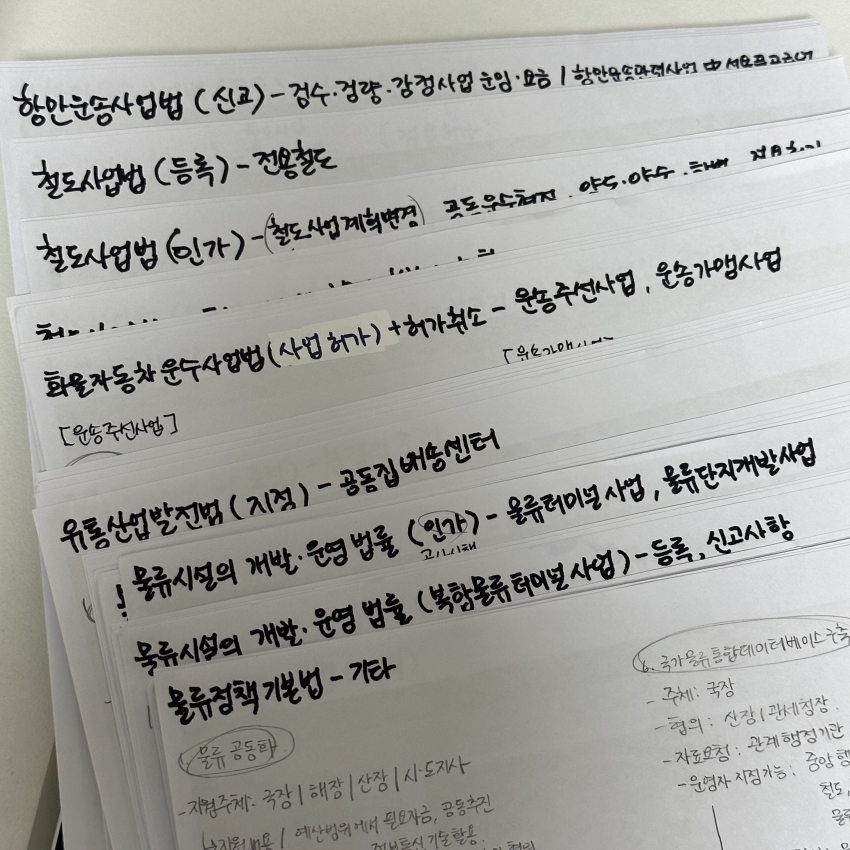 항만운송사업법 (신고) - 검수·검량·감정사업 운임·요금 / 항만운송관련사업 中
철도사업법 (등록) - 전용철도
철도사업법 (인가) - (철도사업계획변경) 공동운수협정, 양도·양수,
화물자동차 운수사업법 (사업 허가) + 허가취소 - 운송주선사업, 운송가맹사업
[운송주선사업]
유통산업발전법 (지정) - 공동집배송센터
물류시설의 개발·운영 법률 (인가) - 물류터미널 사업, 물류단지개발사업
물류시설의 개발·운영 법률 (복합물류터미널 사업) - 등록, 신고사항
물류정책기본법 - 기타
물류 공동화
- 지원주체: 국장 / 해장 / 산장 / 시·도지사
예산범위에서 필요자금, 공동추진
정보통신기술활용
6. 국가물류통합데이터베이스 구축
- 주체: 국장
- 협의: 산장 / 관세청장
- 자료요청: 관계행정기관
- 운영자 지정가능: 중앙행
철도,